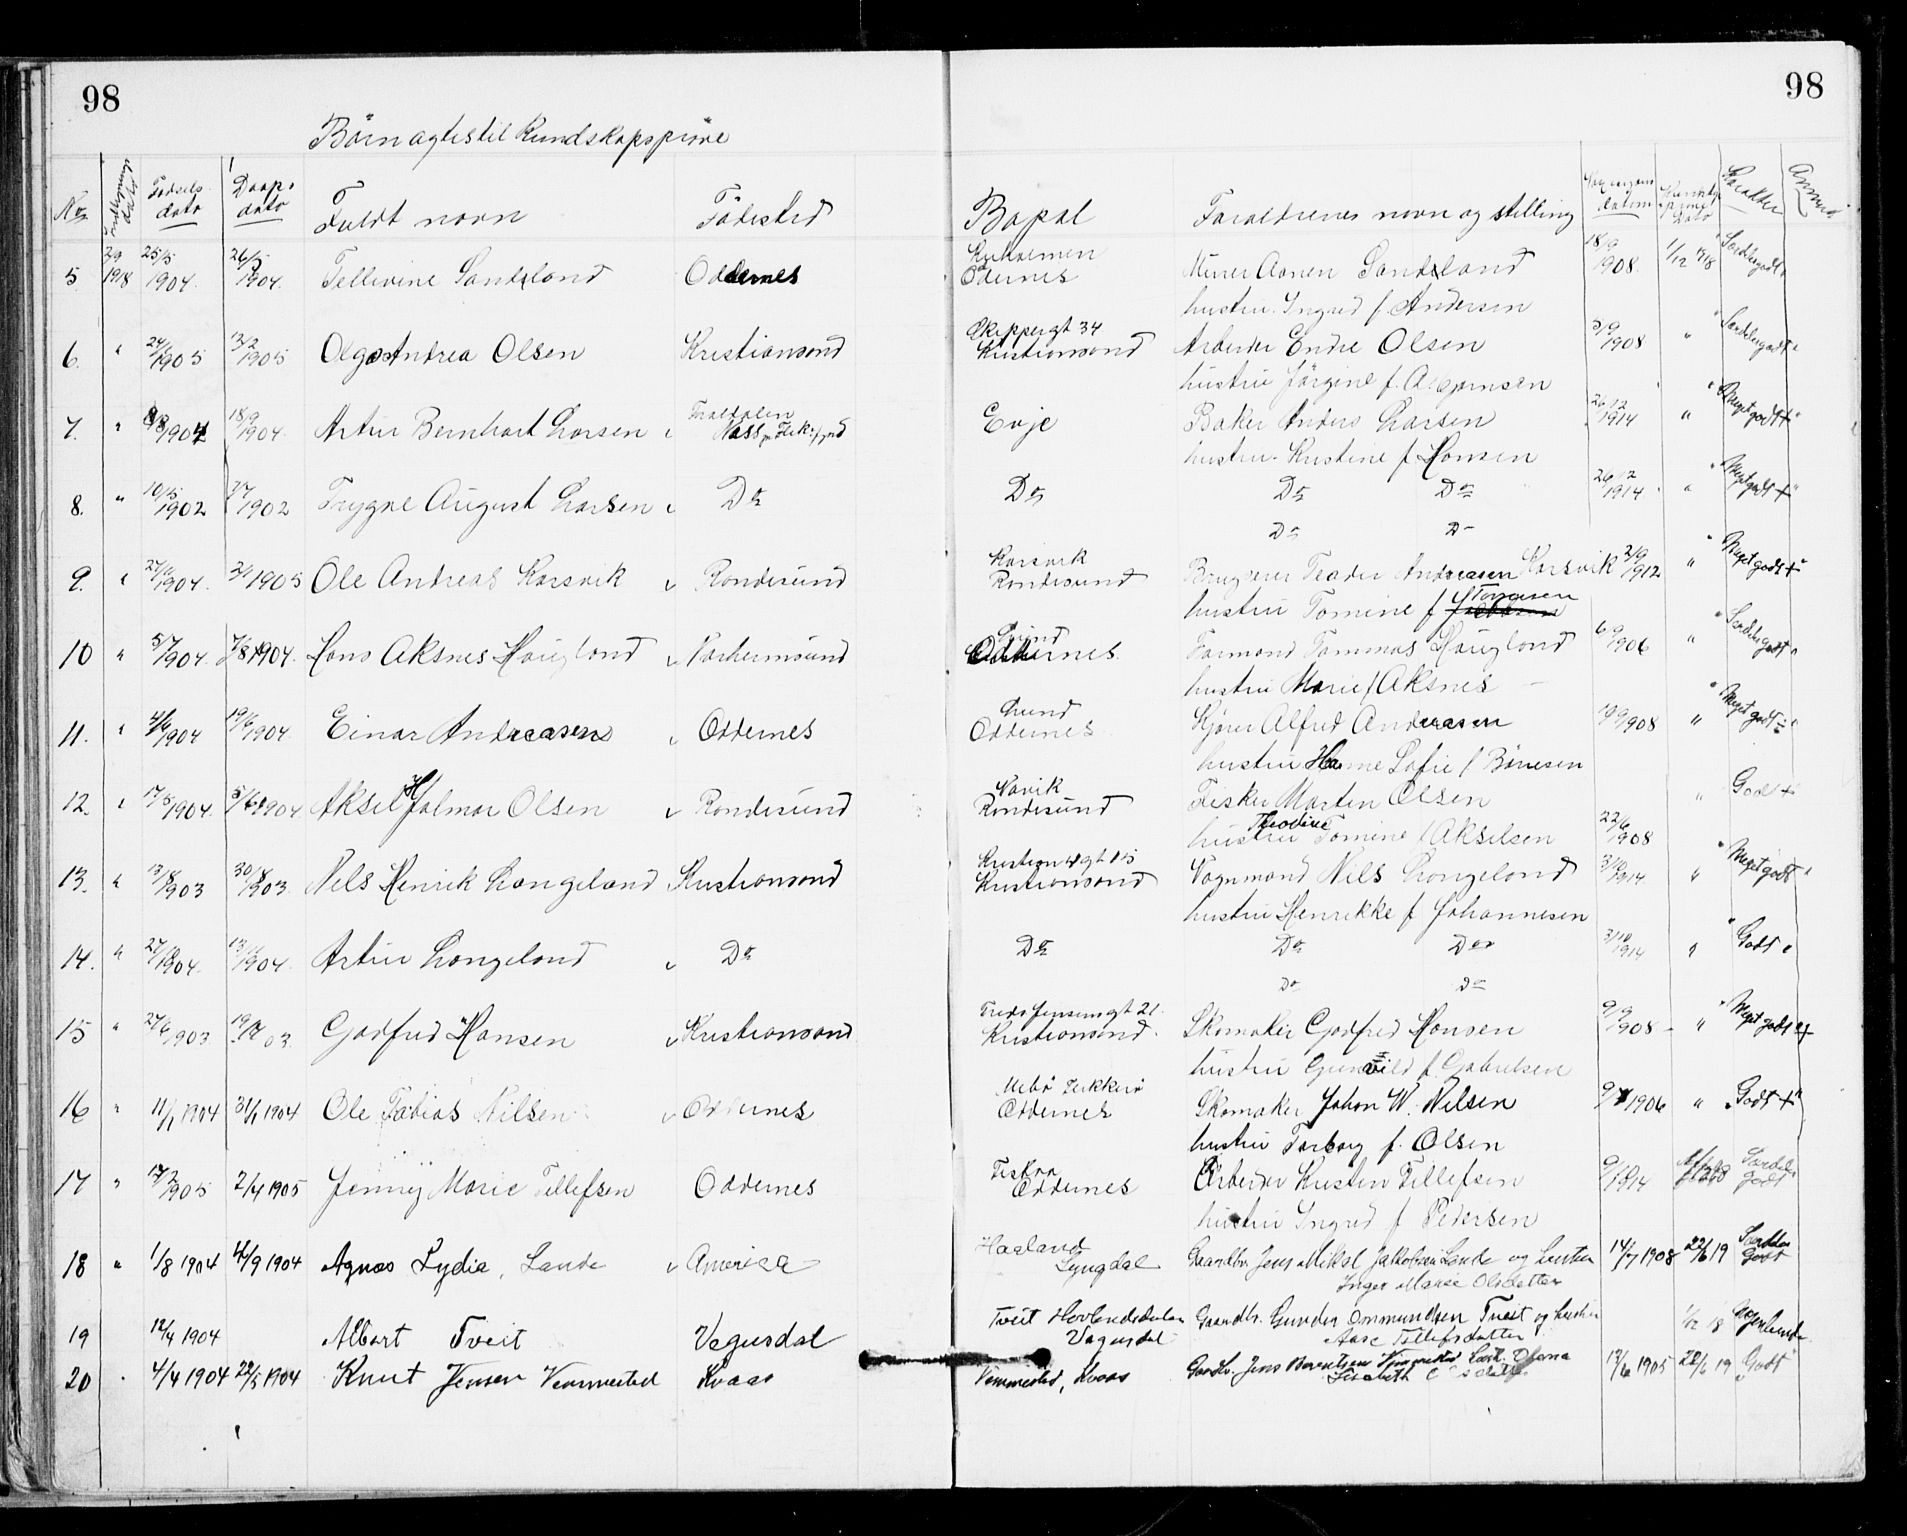 98
98
Børn agtes til Kundskapsprøve
No
Fødsels dato
Daaps dato
Fuldt navn
Fødested
Bopæl
Foreldrenes navn og stilling
Karakter
Anmerk
5 2/9 1918 25/5 1904. 26/5 1904. Tellevine Sandsland Oddernes Oddernes Murer Aanen Sandsland 18/9 1908. 1/12 1918 " Særdelesgodt "
hustru Ingrid f. Andersen
6. " 24/ 1905 13/2 1905 Olga Andrea Olsen Kristiansand Skippergt 34 Kristiansand Arbeider Endre Olsen 5/9 1908 " " Særdelesgodt "
hustru Jörgine f. Asbjørnsen
7. " 8/8 1904 18/9 1904. Artur Bernhart Larsen Evje Baker Anders Larsen 26/12 1914 " " Megetgodt + "
hustru Kristine f. Hansen
8. " 10/5 1902 7/7 1902 Trygve August Larsen Do Do Do Do 26/12 1914 " " Megetgodt + "
Do D
9. " 27/ 1904. 2/1 1905 Ole Andreas Korsvik Randesund Korsvik Randesund Bruger Peder Andreasen Korsvik 2/9 1912 " " Meget godt + "
hustru Tomine f. Tomesen
10 " 5/7 1904. 7/8 1904. Hans Aksnes Haugland Lund Oddernes Formand Tommas Haugland 6/9 1906 " " Særdelesgodt "
hustru Marie f Aksnes
11. " 4/6 1904 19/6 1904. Einar Andreasen Oddernes Lund Oddernes Kjører Alfred Andreasen 19/9 1908 " " Meget godt ÷ "
hustru Hanne Sofie f Børresen
12. " 17/5 1904. 5/6 1904 Aksel Hjalmar Olsen Randesund Vavik Randesund Fisker Martin Olsen " Godt +
hustru Theodine Tomine f Akselsen 22/6 1908
13. " 13/8 1903 30/8 1903. Nels Henrik Langeland Kristiansand Kristian 4 gt 15 Kristiansand Vognmand Nils Langeland 3/10 1914. " " Megetgodt "
hustru Henrikke f Johannesen
14. " 27/ 1904. 13/11 1904. Artur Langeland Do Do Do Do 3/10 1914 " " Godt "
Do D
15 " 27/6 1903 19/7 03. Godfred Hansen Kristiansand Kristiansand. Skomaker Godfred Hansen 9/9 1908 " " Meget godt +
hustru Gunvild f. Gabrielsen
16 " 11/1 1904 31/1 1904 Ole Tobias Nilsen Oddernes Mebø Flekkerø Oddernes Skomaker Johan W. Nilsen 9/7 1906 " " Godt + "
hustru Torborg f. Olsen
17 " 17/2 1905 2/4 1905 Jenny Marie Tellefsen Oddernes Fiskaa Oddernes Arbeider Kristen Tellefsen Særdeles godt
hustru Ingrid f Pedersen
18 " 1/8 1904 4/9 1904 Agnes Lydia, Lande America Haaland Lyngdal Gaardbr. Jens Mikal Jakobsen Lande og hustru 14/7 1908 22/6 19 Særdeles Godt
Inger Marie Olsdatter
19 12/4 1904 Albert Tveit Vegusdal Tveit Hovlandsdalen Vegusdal Gaardbr. Gunder Ommundsen Tveit og hustru 1/12 18
Aase Tellefsdatter
20 4/4 1904 22/5 1904 Knut Jensen Vemmestad Kvaas Vemmestad, Kvaas Gaardbr. Jens Berentsen Vemmestad 12/6 1905 22/6 19 Godt
Lisabeth